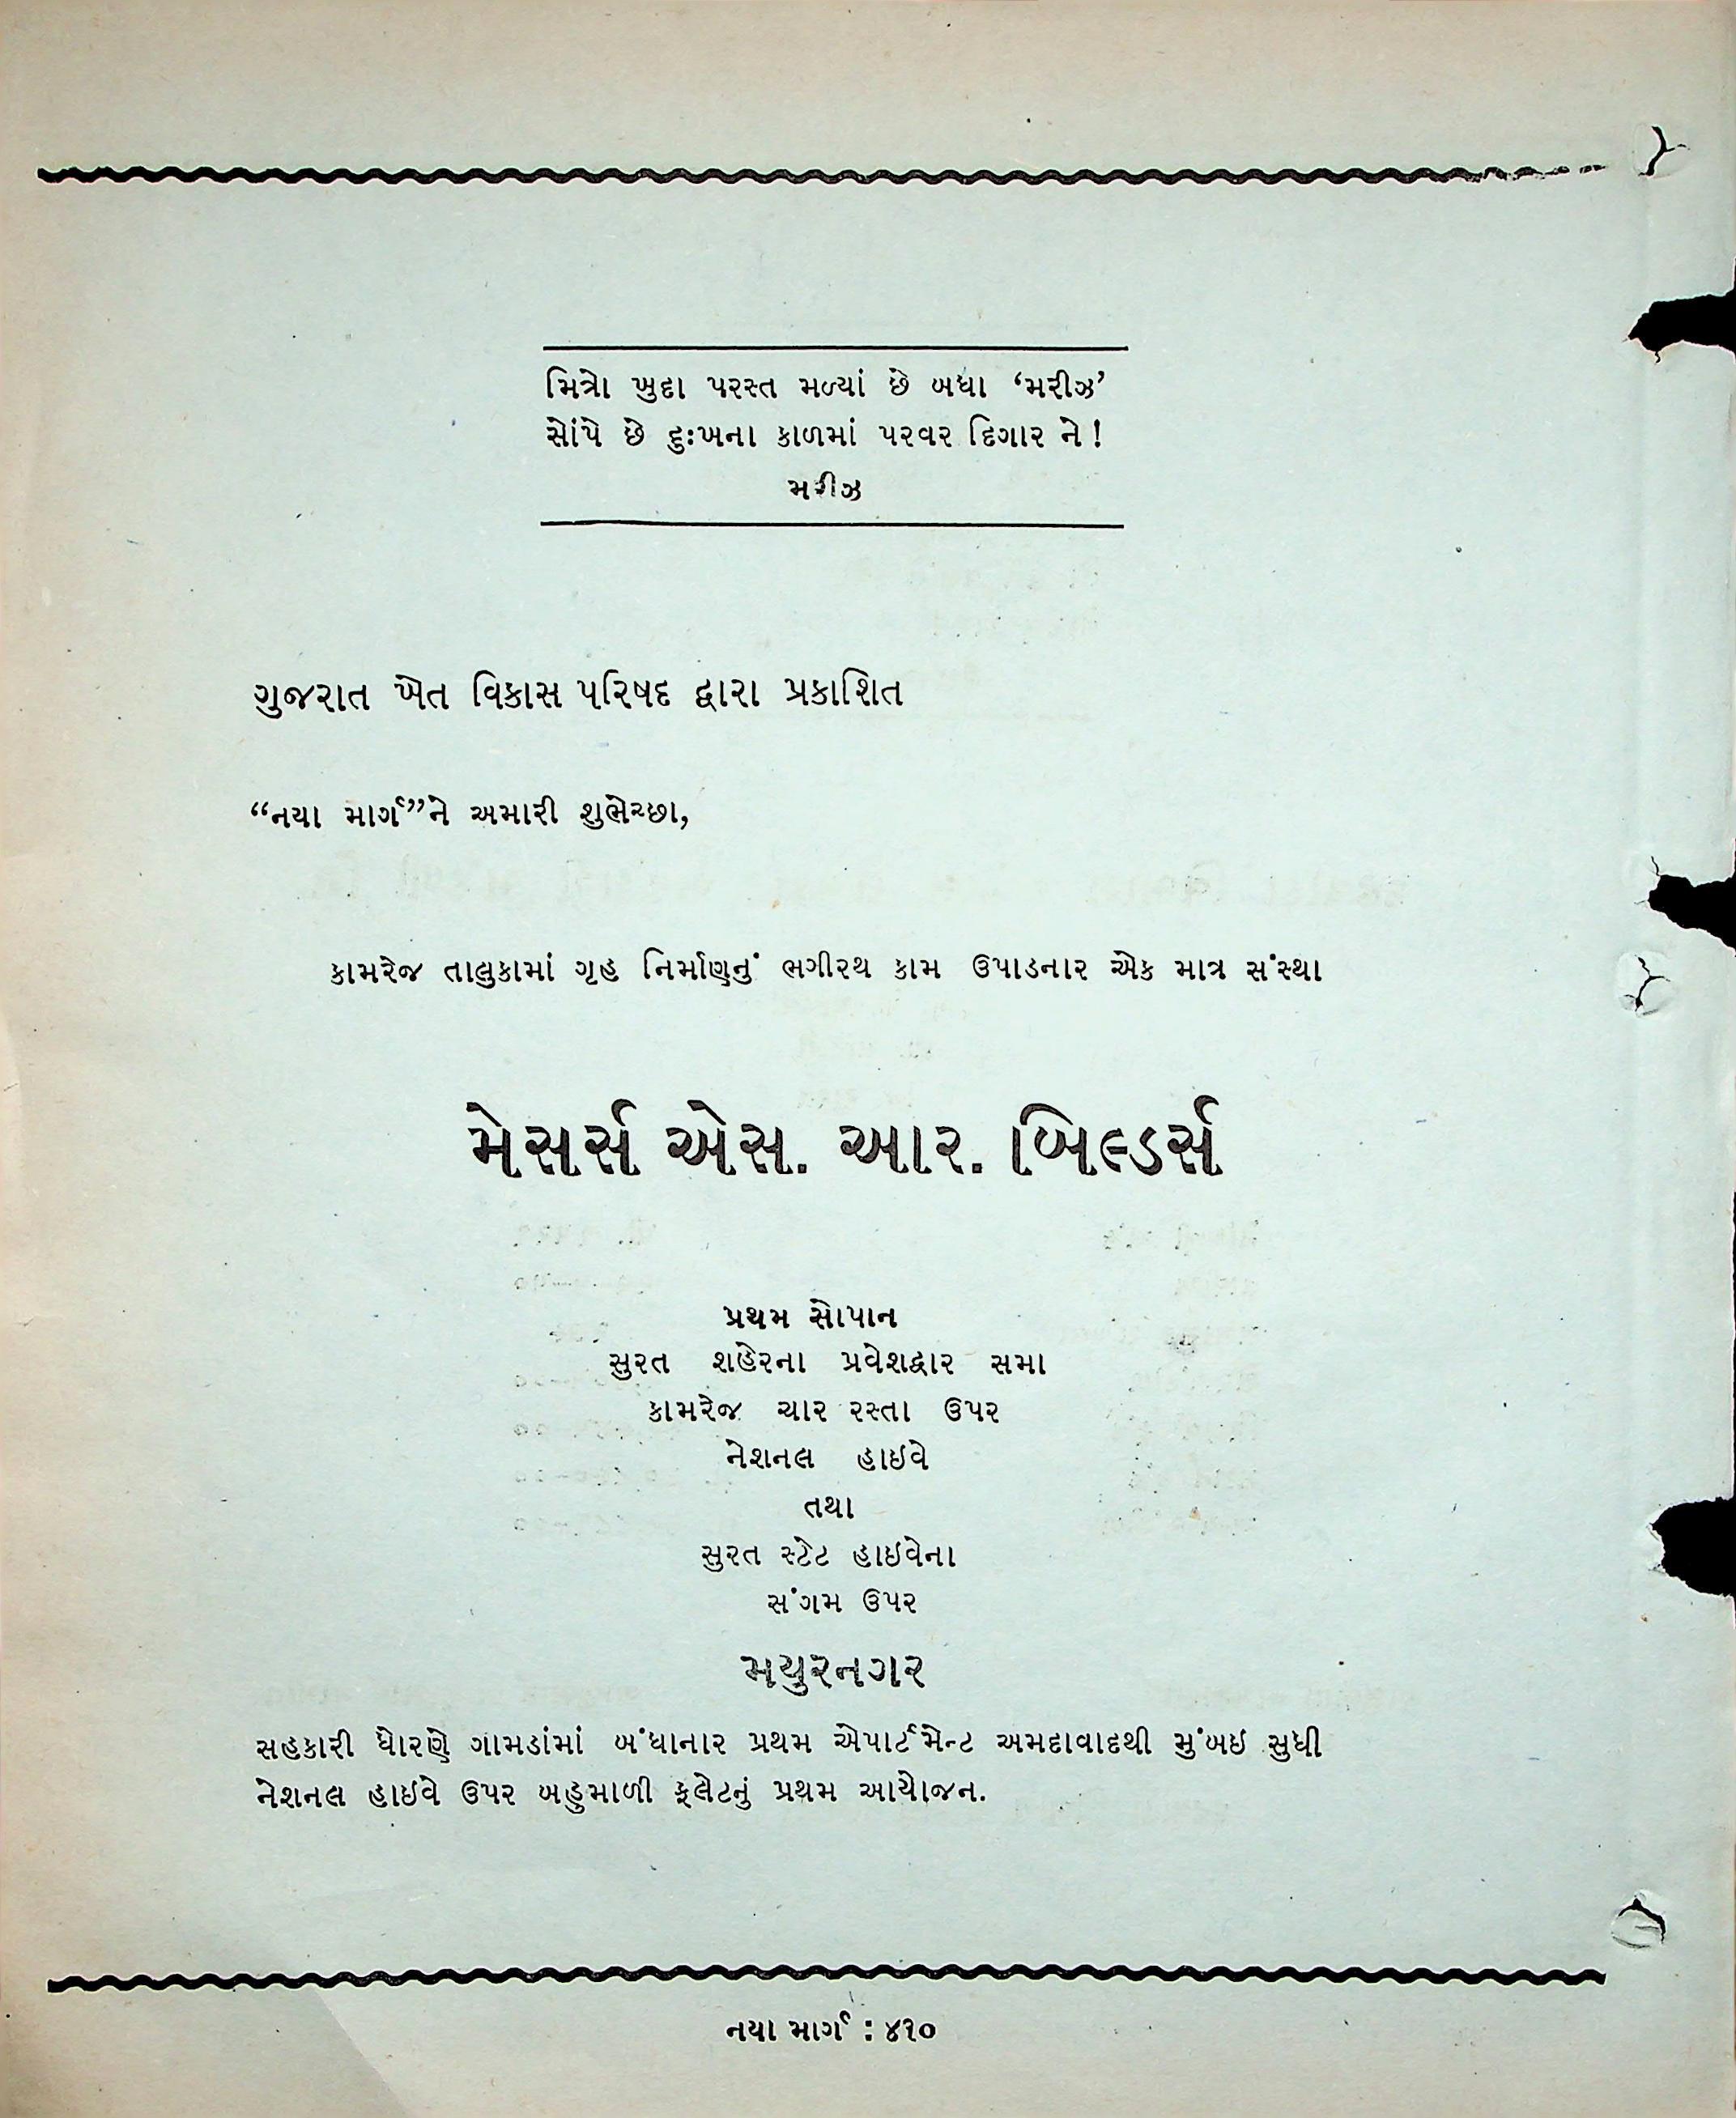 મિત્રો ખુદા પરસ્ત મળ્યાં છે બધા ‘મરીઝ’
સોંપે છે દુઃખના કાળમાં પરવર દિગાર ને!
મરીઝ
ગુજરાત ખેત વિકાસ પરિષદ દ્વારા પ્રકાશિત
“નયા માર્ગ”ને અમારી શુભેચ્છા,
કામરેજ તાલુકામાં ગૃહ નિર્માણનું ભગીરથ કામ ઉપાડનાર એક માત્ર સંસ્થા
મેસર્સ એસ. આર. બિલ્ડર્સ
પ્રથમ સોપાન
સુરત શહેરના પ્રવેશદ્વાર સમા
કામરેજ ચાર રસ્તા ઉપર
નેશનલ હાઈવે
તથા
સુરત સ્ટેટ હાઈવેના
સંગમ ઉપર
મયુરનગર
સહકારી ધોરણે ગામડાંમાં બંધાનાર પ્રથમ એપાર્ટમેન્ટ અમદાવાદથી મુંબઈ સુધી
નેશનલ હાઈવે ઉપર બહુમાળી ફલેટનું પ્રથમ આયોજન.
નયા માર્ગ : ૪૧૦